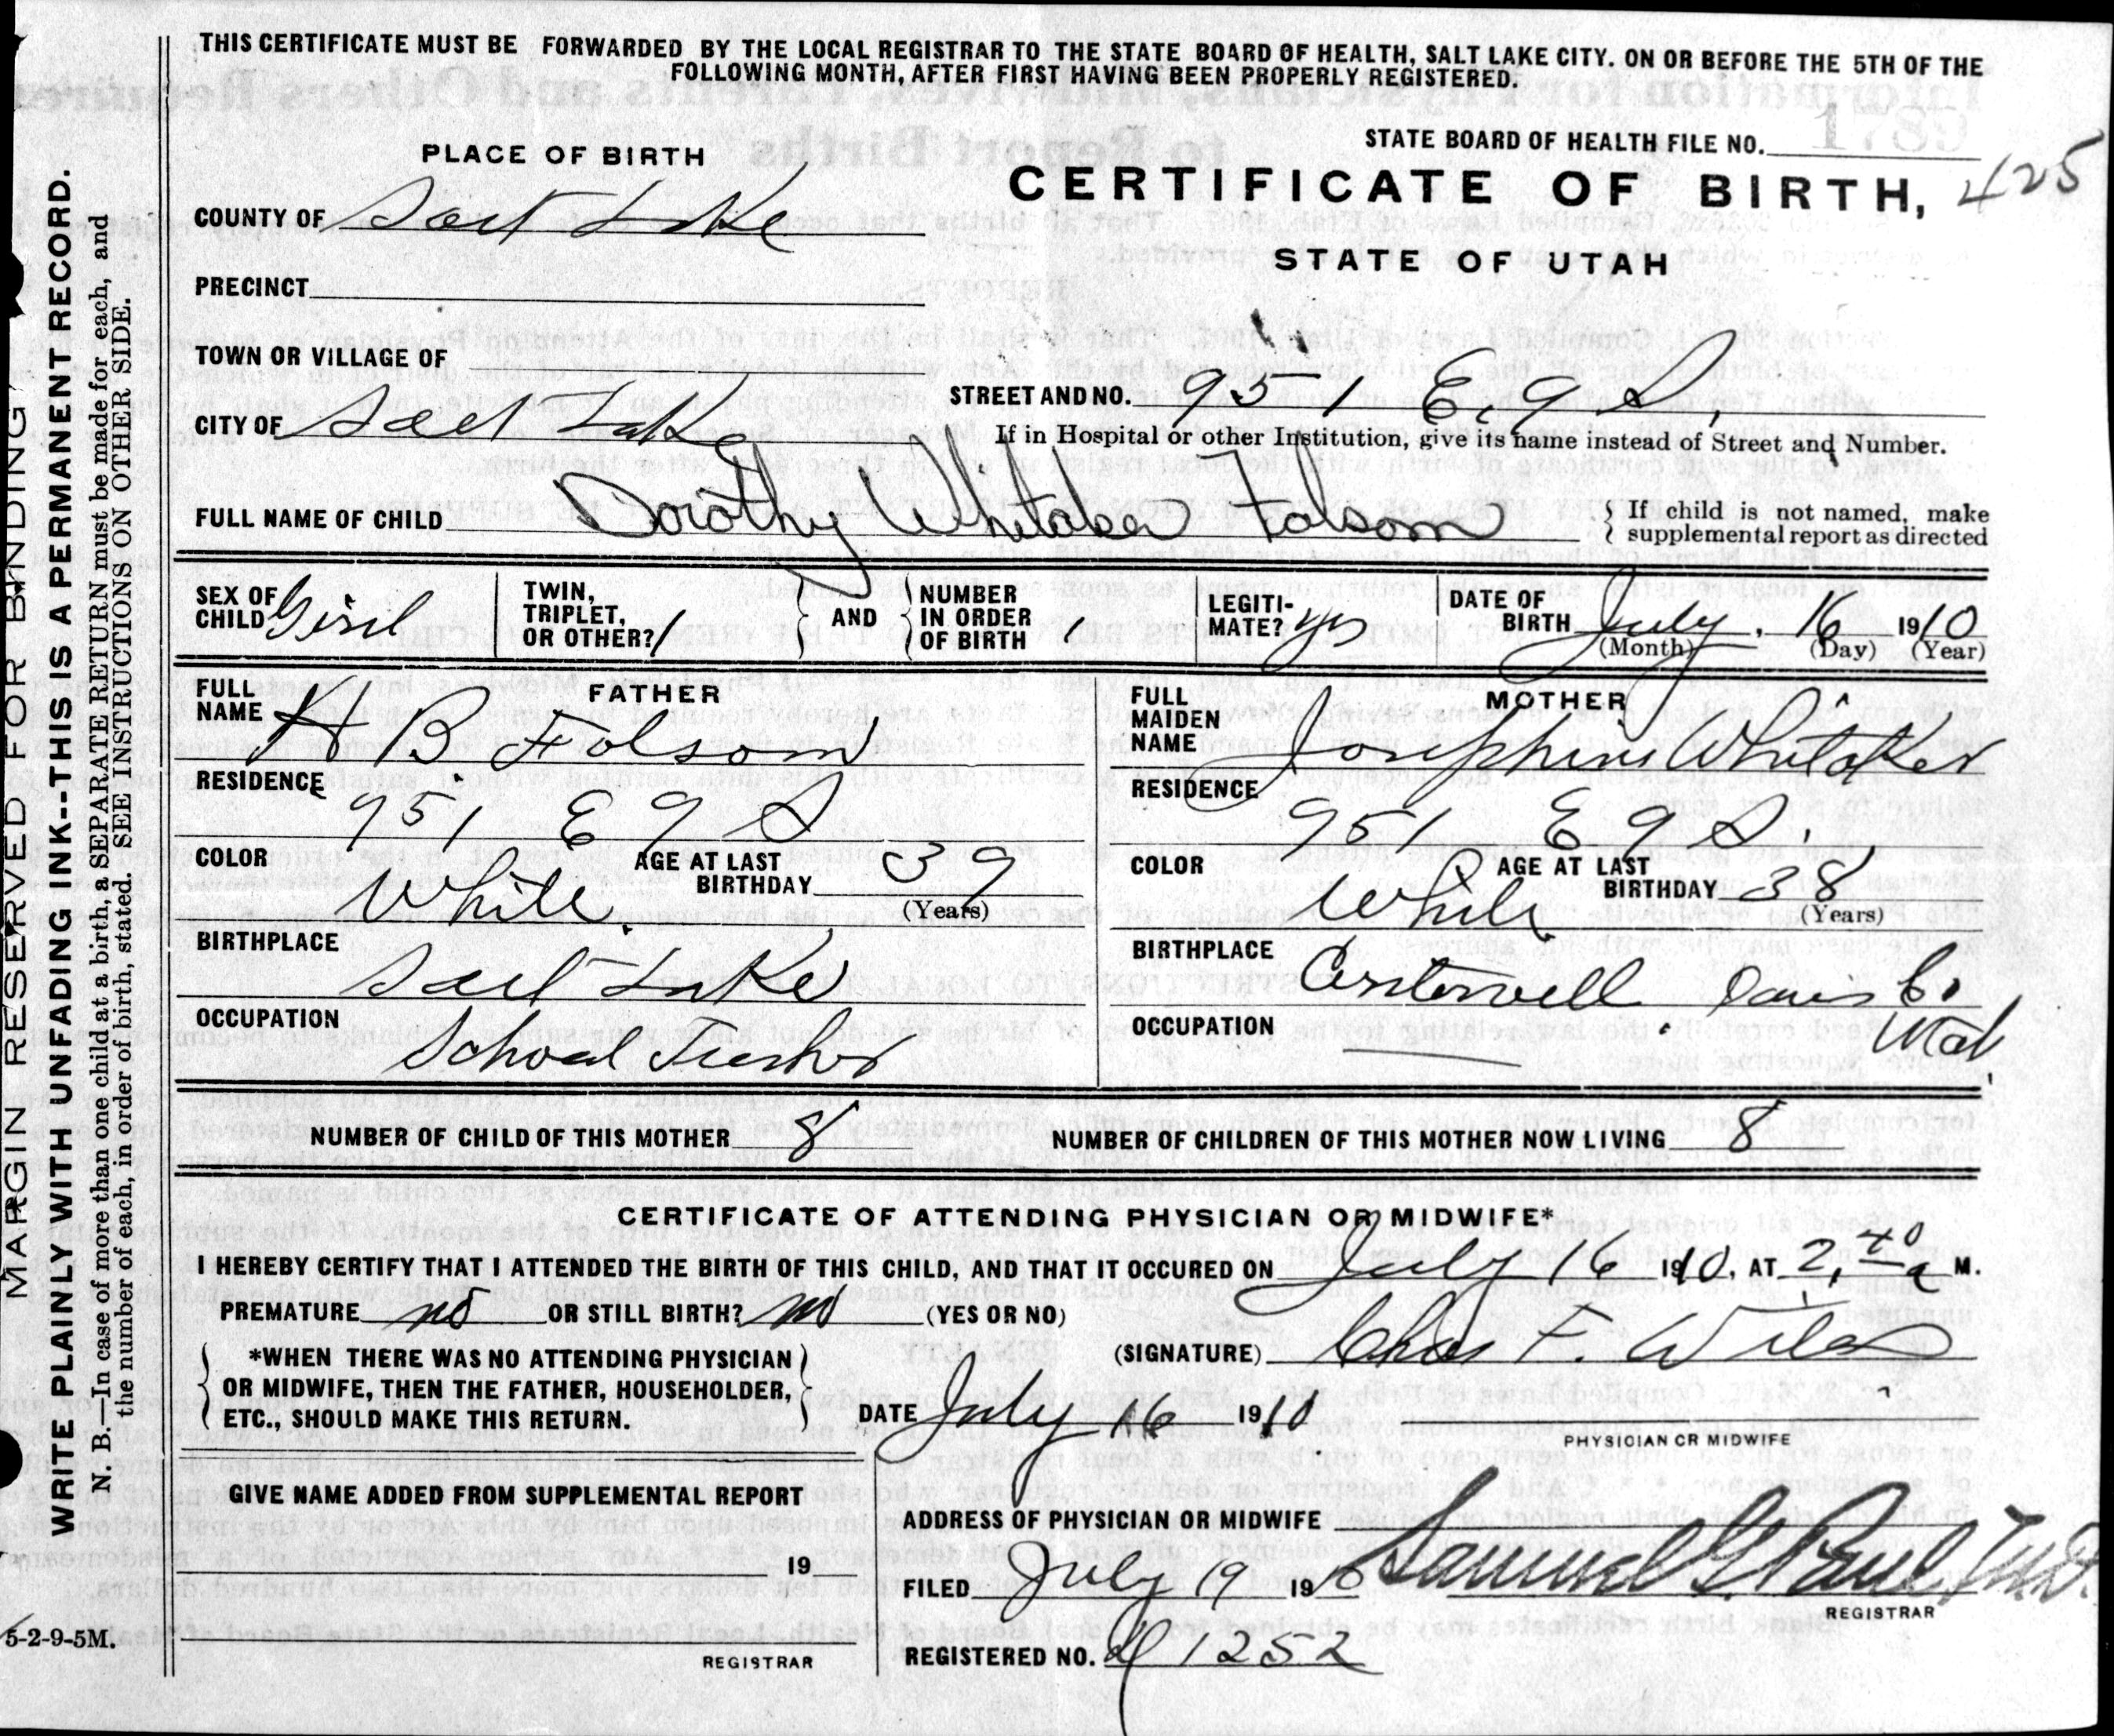 THIS CERTIFICATE MUST BE FORWARDED BY THE LOCAL REGISTRAR TO THE STATE BOARD OF HEALTH, SALT LAKE CITY. ON OR BEFORE THE 5TH OF THE
FOLLOWING MONTH, AFTER FIRST HAVING BEEN PROPERLY REGISTERED.
STATE BOARD OF HEALTH FILE NO. 1789
425
PLACE OF BIRTH
CERTIFICATE OF BIRTH,
STATE OF UTAH
COUNTY OF Salt Lake
PRECINCT
TOWN OR VILLAGE OF
CITY OF Salt Lake
STREET AND NO. 951 E. 9 S.
If in Hospital or other Institution, give its name instead of Street and Number.
FULL NAME OF CHILD Dorothy Whitaker Folsom
{ If child is not named, make
{ supplemental report as directed
SEX OF CHILD Girl
TWIN, TRIPLET, OR OTHER? 1
AND
NUMBER IN ORDER OF BIRTH 1
LEGITI-MATE? yes
DATE OF BIRTH July 16 1910
(Month) (Day) (Year)
FATHER
FULL NAME H B Folsom
RESIDENCE 951 E 9 S
COLOR White
AGE AT LAST BIRTHDAY 39
(Years)
BIRTHPLACE Salt Lake
OCCUPATION School Teacher
MOTHER
FULL MAIDEN NAME Josephine Whitaker
RESIDENCE 951 E 9 S.
COLOR White
AGE AT LAST BIRTHDAY 38
(Years)
BIRTHPLACE Centerville Davis Co
Utah
OCCUPATION
NUMBER OF CHILD OF THIS MOTHER 8
NUMBER OF CHILDREN OF THIS MOTHER NOW LIVING 8
CERTIFICATE OF ATTENDING PHYSICIAN OR MIDWIFE*
I HEREBY CERTIFY THAT I ATTENDED THE BIRTH OF THIS CHILD, AND THAT IT OCCURED ON July 16 1910, AT 2,40 a M.
PREMATURE no OR STILL BIRTH? no (YES OR NO)
(SIGNATURE) Chas F. Wilcox
*WHEN THERE WAS NO ATTENDING PHYSICIAN
OR MIDWIFE, THEN THE FATHER, HOUSEHOLDER,
ETC., SHOULD MAKE THIS RETURN.
DATE July 16 1910.
PHYSICIAN OR MIDWIFE
GIVE NAME ADDED FROM SUPPLEMENTAL REPORT
19
REGISTRAR
ADDRESS OF PHYSICIAN OR MIDWIFE
FILED July 19 1910 Samuel G. Paul, M.D.
REGISTRAR
REGISTERED NO. 1252
5-2-9-5M.
MARGIN RESERVED FOR BINDING
WRITE PLAINLY WITH UNFADING INK--THIS IS A PERMANENT RECORD.
N. B.—In case of more than one child at a birth, a SEPARATE RETURN must be made for each, and
the number of each, in order of birth, stated. SEE INSTRUCTIONS ON OTHER SIDE.